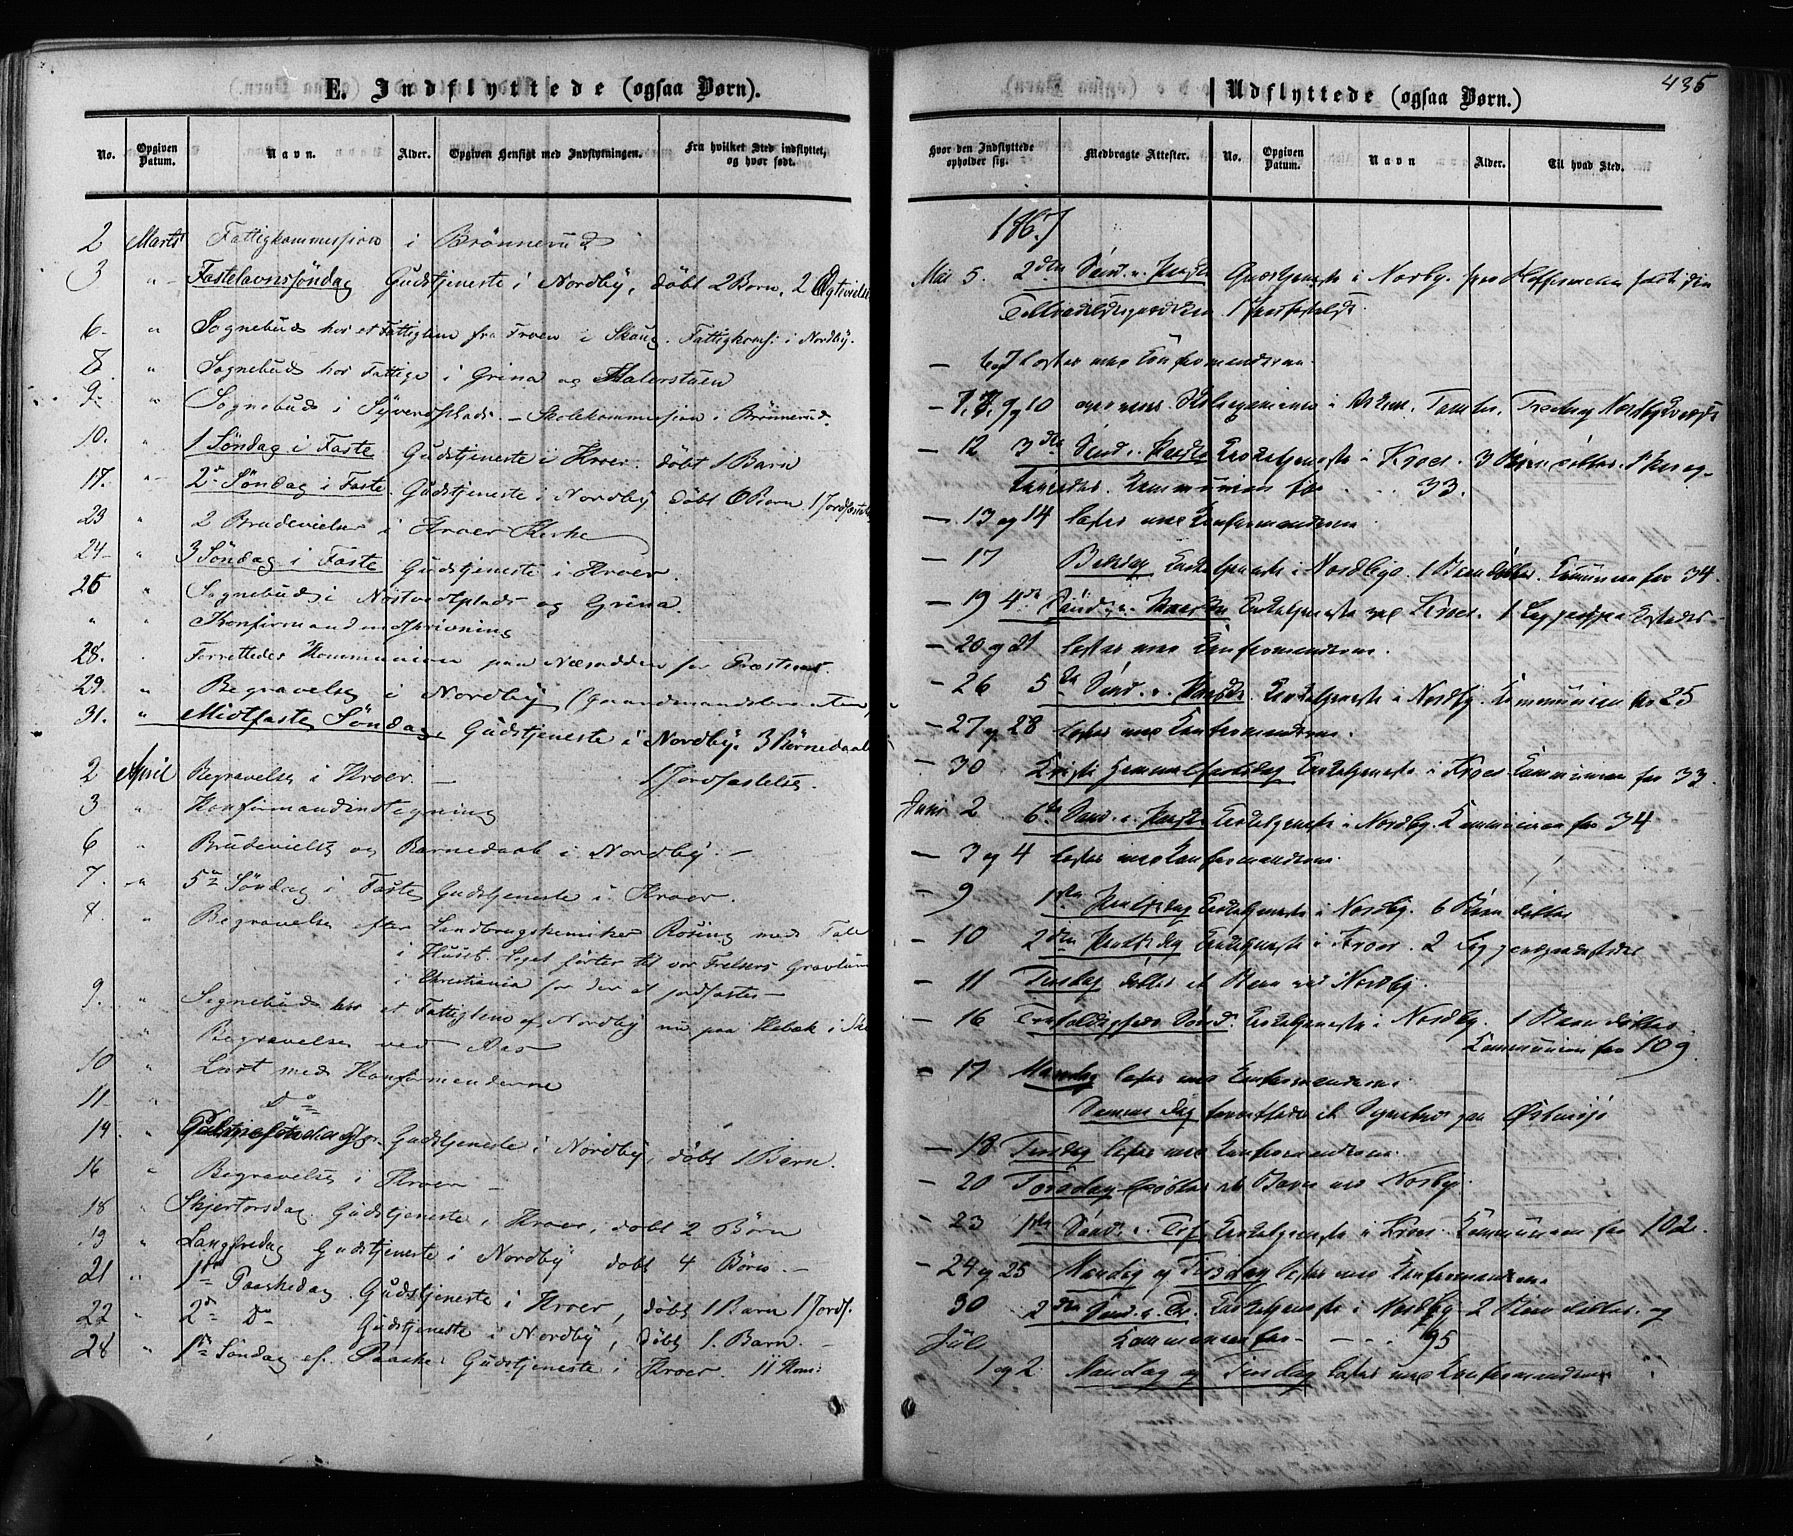 E. Indflyttede (ogsaa Børn).
No. Opgiven Datum. Navn. Alder. Opgiven Hensigt med Indflytningen. Fra hvilket Sted indflyttet, og hvor født.
2 Marts Fattigkommission i Brønnerud
3 " Fastelavnssøndag Gudstjeneste i Nordby, døbt 2 Børn, 2 Ægtevielse
6 " Sognebud hos et Fattiglem fra Froen i Skaug. Fattigkoms: i Nordby.
8. " Sognebud hos Fattige i Grina og
9 " Sognebud i – Skolekommission i Brønnerud.
10. " 1 Søndag i Faste Gudstjeneste i Kroer. døbt 1 Barn
17. " 2d Søndag i Faste. Gudstjeneste i Nordby døbt 6 Børn, 1 Jordfæstelse
23 " 2 Brudevielser i Kroer Kirke
24 " 3 Søndag i Faste Gudstjeneste i Kroer.
26 " Sognebud i Nøstvedtplads og Grina.
" " Konfirmandindskrivning
28. " Forrettedes Kommunion paa Næsodden for Præsterne.
29. " Begravelse i Nordby
31. " Midtfaste Søndag. Gudstjeneste i Nordby. 3 Børnedaab
2 April Begravelse i Kroer. – 1 Jordfæstelse.
3 " Konfirmandindtegning
6 " Brudevielse og Barnedaab i Nordby. –
7. " 5te Søndag i Faste Gudstjeneste i Kroer.
8. " Begravelse efter Landbrugskemiker Rosing med Tale
i Huset. Liget førtes til vor Frelsers Gravlund
i Christiania for der at jordfæstes –
9. " Sognebud hos et Fattiglem af Nordby nu paa Kebæk i Sk
" Begravelse ved Aas
10 " Læst med Konfirmanderne
11 " Do
14. " Palmesøndag. Gudstjeneste i Nordby, døbt 1 Barn.
16 " Begravelse i Kroer –
18 " Skjertorsdag. Gudstjeneste i Kroer, døbt 2 Børn
19 " Langfredag Gudstjeneste i Nordby døbt 4 Børn. –
21 " 1te Paaskedag. Gudstjeneste i Kroer, døbt 1 Barn 1 Jordf.
22 " 2d Do Gudstjeneste i Nordby, døbt 1. Barn. –
28 " 1te Søndag ef. Paaske. Gudstjeneste i Kroer. 11 Kom:
435
Udflyttede (ogsaa Børn.)
Hvor den Indflyttede opholder sig. Medbragte Attester. No. Opgiven Datum. Navn Alder. Til hvad Sted.
1867
Mai 5. 2den Sønd. e. Paaske Gudstjeneste i Norby.
1 Jordfæstelse.
– 6 og 7 læstes med Confirmanderne.
– 7, 8, 9 og 10 Skoleexamen i
– 12 3die Sønd. e. Paaske Kirketjeneste i Kroer. 3 Børn døbtes.
Communion for 33.
– 13 og 14 læstes med Confirmanderne
– 17 Bededag Kirketjeneste i Nordbye. 1 Barn døbtes. Communion for 34.
– 19 4de Sønd. e. Paaske Kirketjeneste ved Kroer. 1
– 20 og 21 læstes med Confirmanderne.
– 26 5te Sønd. e. Paaske. Kirketjeneste i Nordby. Communion for 25
– 27 og 28 læstes med Confirmanderne.
– 30 Kristi Himmelfartsdag Kirketjeneste i Kroer Communion for 33.
Juni 2 6te Sønd. e. Paaske Kirketjeneste i Nordby. Communion for 34
– 3 og 4 læstes med Confirmanderne.
– 9 1ste Pintsedag Kirketjeneste i Nordby. 6 Børn døbtes
– 10 2den Pintsedag Kirketjeneste i Kroer. 2
– 11 Tirsdag døbtes et Barn ved Nordby.
– 16 Trefoldigheds Sønd. Kirketjeneste i Nordby. 1 Barn døbtes.
Communion for 109.
– 17 Mandag læstes med Confirmanderne.
Samme Dag forrettedes et Sognebud paa
– 18 Tirsdag læstes med Confirmanderne.
– 20 Torsdag døbtes et Barn ved Norby.
– 23 1ste Sønd. e. Tref. Kirketjeneste i Kroer. Communion for 102.
– 24 og 25 Mandag og Tirsdag læstes med Confirmanderne
30 2den Sønd. e. Tr. Kirketjeneste i Nordby 2 Børn døbtes. og
Communion for – – – 95
Juli
1 og 2. Mandag og Tirsdag læstes med Confirmanderne